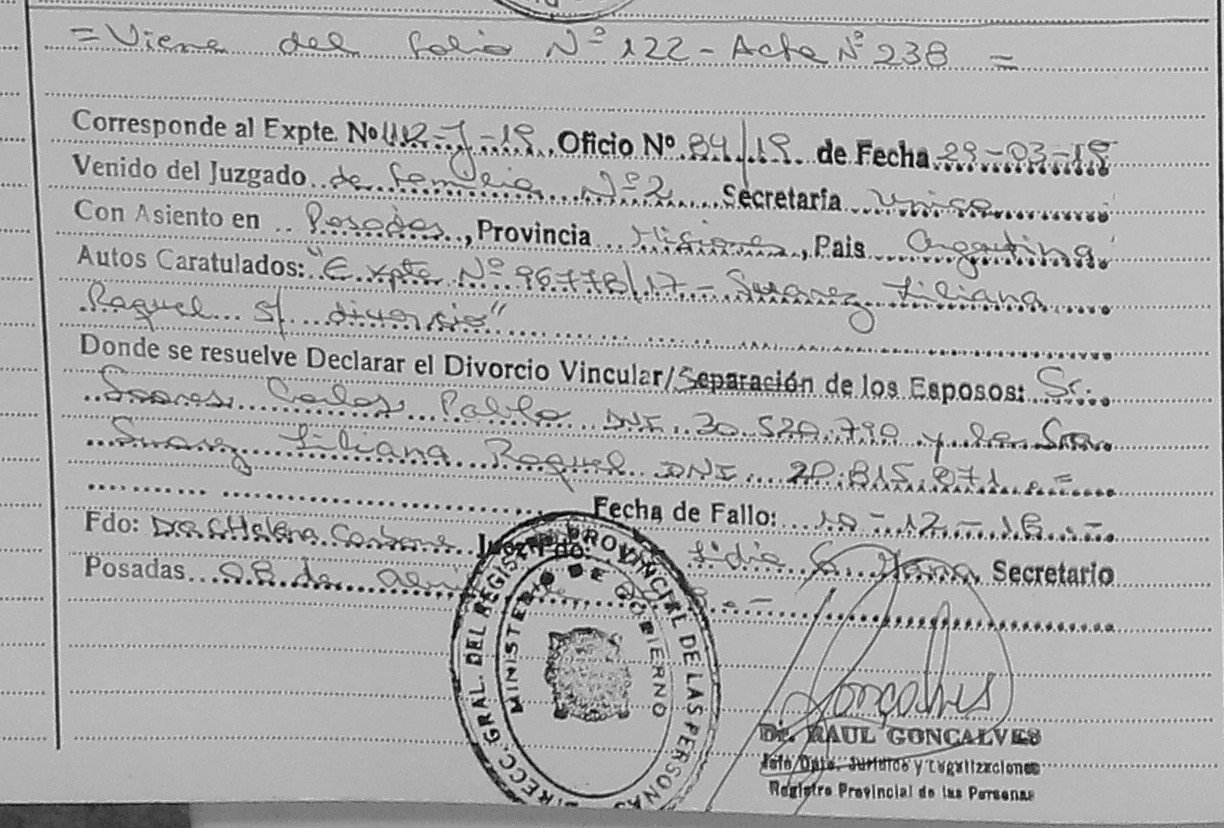 = Viene del folio Nº 122 - Acte Nº 238 =
Corresponde al Expte. Nº 112-J-19. Oficio Nº 84/19 de Fecha 29-03-19
Venido del Juzgado de Familia Nº 2 Secretaría Unica
Con Asiento en Posadas, Provincia Misiones, Pais Argentina.
Autos Caratulados: "Expte Nº 96778/17 - Suarez Liliana
Raquel s/ divorcio"
Donde se resuelve Declarar el Divorcio Vincular/Separación de los Esposos: Sr.
Soares Carlos Pablo DNI 30.520.790 y la Sra.
Suarez Liliana Raquel DNI 20.815.071. =
Fecha de Fallo: 10-12-18.-
Fdo: Dra Helena Juez Fdo: Lidia Secretario
Posadas 08 de
DIRECC. GRAL. DEL REGISTRO PROVINCIAL DE LAS PERSONAS
MINISTERIO DE GOBIERNO
Goncalves
Dr. RAUL GONCALVES
Jefe Dpto. Jurídico y Legalizaciones
Registro Provincial de las Personas